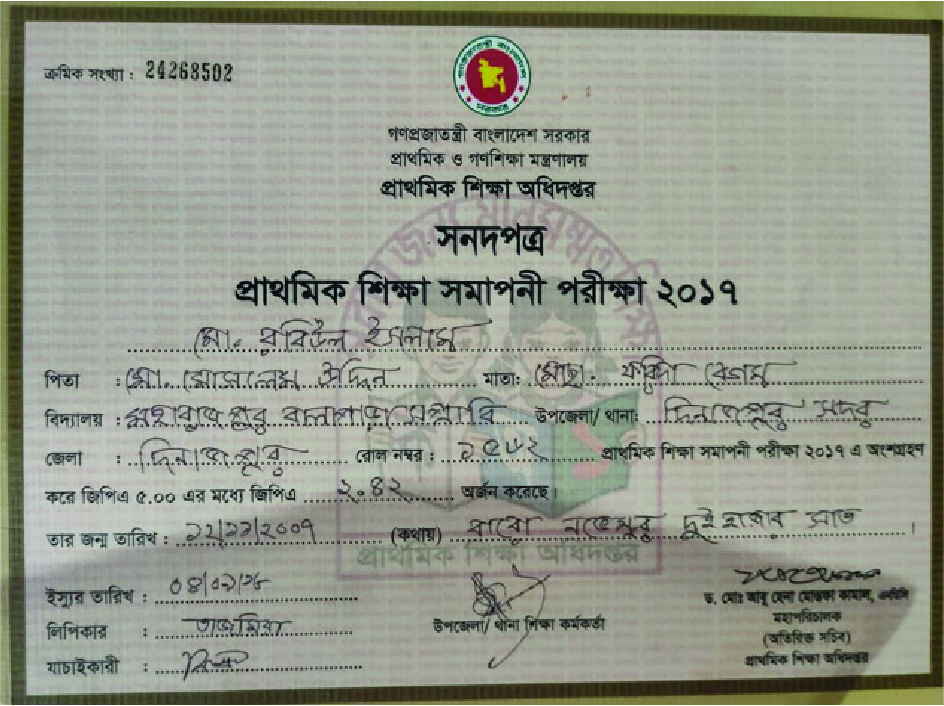 ক্রমিক সংখ্যা : 24268502
গণপ্রজাতন্ত্রী বাংলাদেশ সরকার
গণপ্রজাতন্ত্রী বাংলাদেশ সরকার
প্রাথমিক ও গণশিক্ষা মন্ত্রণালয়
প্রাথমিক শিক্ষা অধিদপ্তর
সনদপত্র
প্রাথমিক শিক্ষা সমাপনী পরীক্ষা ২০১৭
মো. রবিউল ইসলাম
পিতা : মো. মোসলেম উদ্দিন মাতা: মোছা. বেগম
বিদ্যালয় : মহারাজপুর উপজেলা/ থানা: দিনাজপুর সদর
জেলা : দিনাজপুর রোল নম্বর : প্রাথমিক শিক্ষা সমাপনী পরীক্ষা ২০১৭ এ অংশগ্রহণ
করে জিপিএ ৫.০০ এর মধ্যে জিপিএ ২.৪২ অর্জন করেছে।
তার জন্ম তারিখ : ১২/১১/২০০৭ (কথায়) বারো নভেম্বর দুই হাজার সাত ।
প্রাথমিক শিক্ষা অধিদপ্তর
ইস্যুর তারিখ :
লিপিকার : তাজমিরা
উপজেলা/ থানা শিক্ষা কর্মকর্তা
যাচাইকারী :
ড. মোঃ আবু হেনা মোস্তফা কামাল, এনডিসি
মহাপরিচালক
(অতিরিক্ত সচিব)
প্রাথমিক শিক্ষা অধিদপ্তর